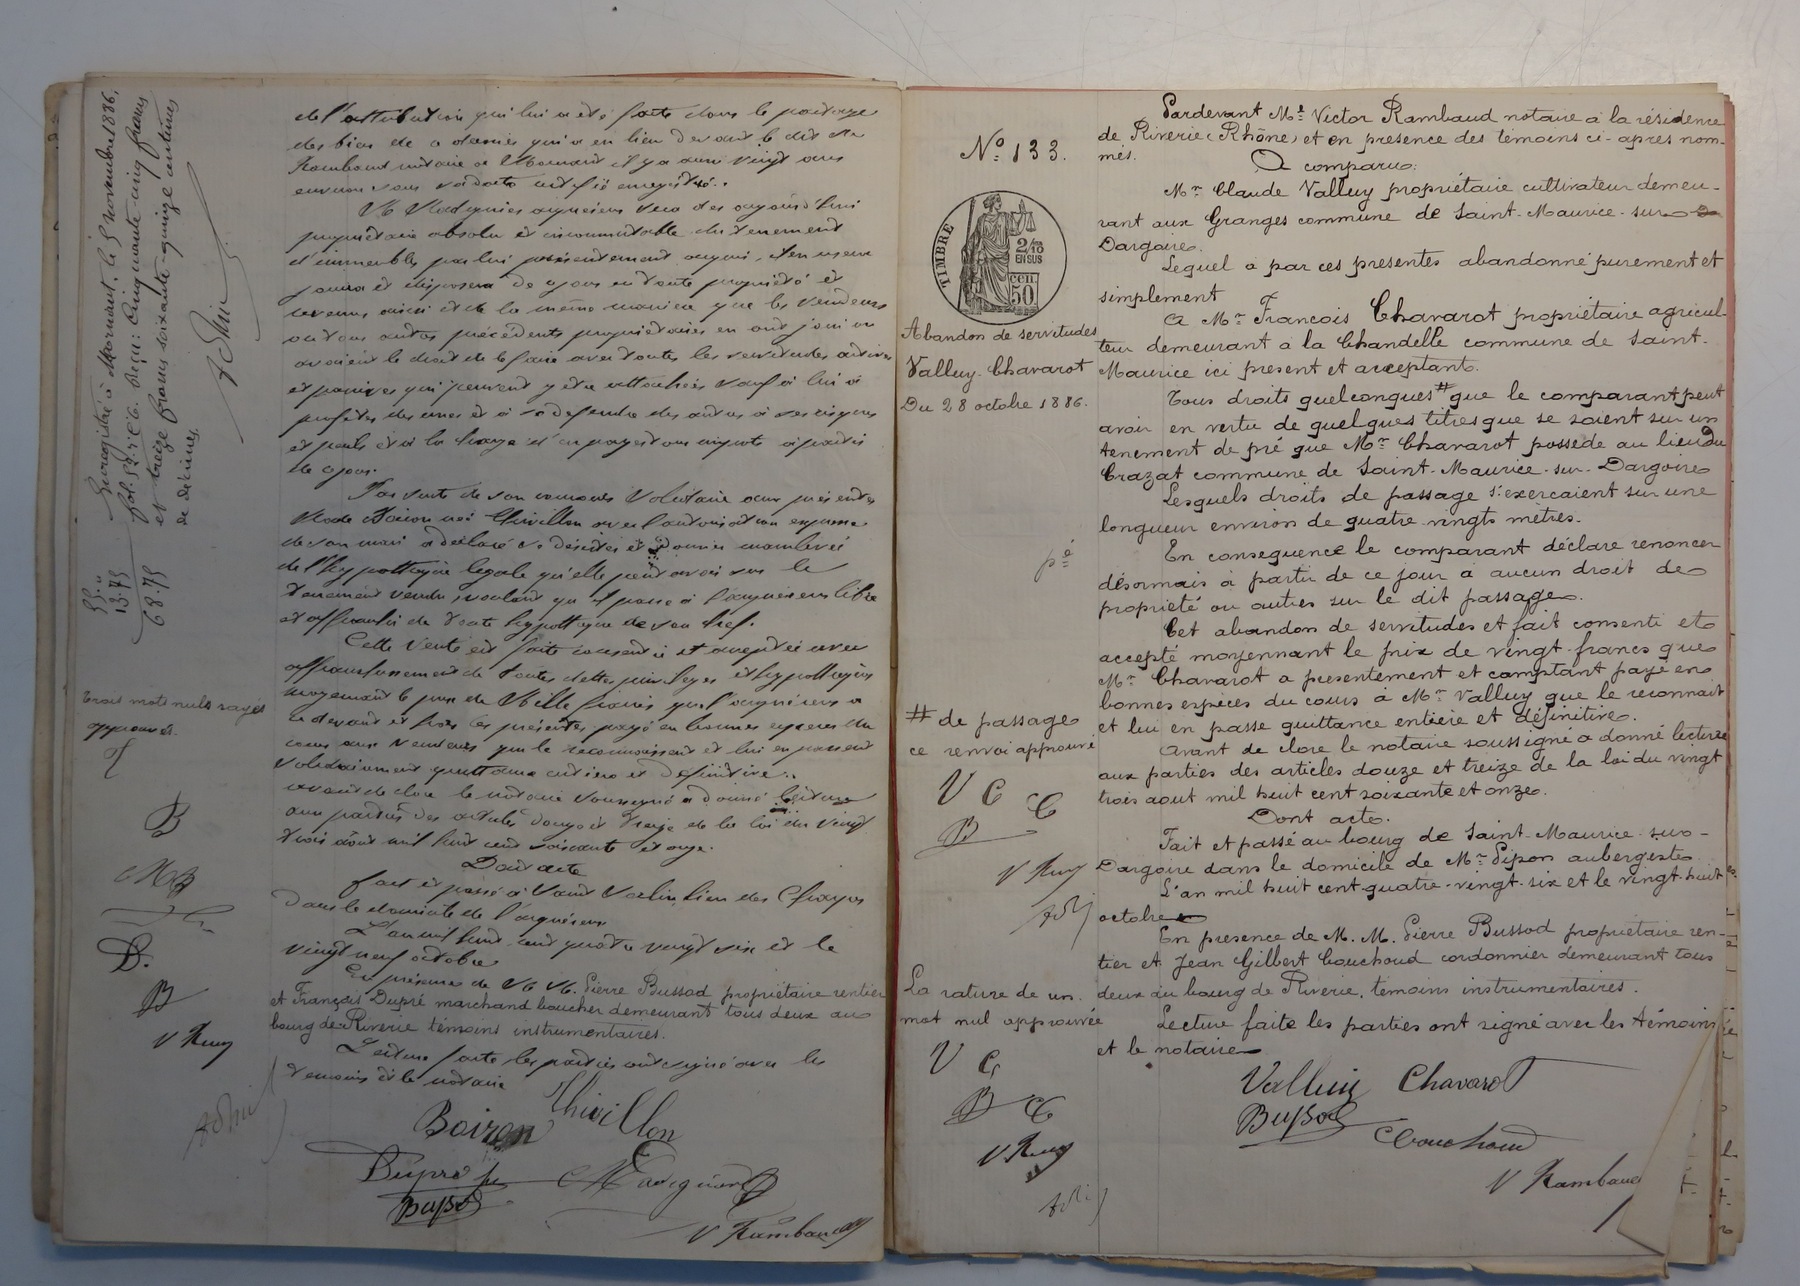 Enregistré à Mornant, le 5 Novembre 1886,
fol. 52. Reçu: Cinquante cinq francs
et treize francs soixante-quinze centimes
de décimes.
55. "
13.75
68.75
Trois mots nuls rayés
approuvés.
B
MB
D.
B
V Ram
de l'attribution qui lui a été faite dans le partage
des biens de
Rambaud notaire à Mornant il y a aura vingt ans
environ sans
M Madignier acquéreur sera des aujourd'hui
propriétaire absolu et incommutable du tenement
d'immeubles par lui présentement acquis, il en usera
jouira et disposera de ce jour en toute propriété et
revenus ainsi et de la même manière que les vendeurs
ou tous autres précédents propriétaires en ont joui ou
avaient le droit de le faire avec toutes les servitudes actives
et passives qui peuvent y être attachées sauf à lui à
profiter des unes et à se défendre des autres à ses risques
et périls et à la charge d'en payer tous impots à partir
de ce jour.
Par suite de son concours volontaire aux présentes
Made Boiron née Thivillon avec l'autorisation expresse
de son mari a déclaré se désister et donner mainlevée
de l'hypothèque légale qu'elle peut avoir sur le
tenement vendu, voulant qu'il passe à l'acquéreur libre
et affranchi de toute hypothèque de son chef.
Cette vente est faite consentie et acceptée avec
affranchissement de toutes dettes privilèges et hypothèques
moyennant le prix de Mille francs que l'acquéreur a
ci devant et hors les présentes payé en bonnes espèces du
cours aux vendeurs qui le reconnaissent et lui en passent
solidairement quittance entière et définitive.
avant de clore le notaire soussigné a donné lecture
aux parties des articles douze et treize de la loi du vingt
trois aout mil huit cent soixante et onze.
Dont acte
fait et passé à Saint lieu des
dans le domicile de l'acquéreur
L'an mil huit cent quatre vingt six et le
vingt neuf octobre
En présence de M. M. Pierre Bussod propriétaire rentier
et François Dupré marchand boucher demeurant tous deux au
bourg de Riverie témoins instrumentaires.
Lecture faite les parties ont signé avec les
témoins et le notaire
Boiron Thivillon
Dupré Madignier
Bussod
V Rambaud
No 133.
TIMBRE
2/10
EN SUS
cen.
50
Abandon de servitudes
Valluy-Chavarot
Du 28 octobre 1886.
# de passage
ce renvoi approuvé
V C
C
B
V Ram
La rature de un
mot nul approuvée
V C
B C
V Ram
Pardevant Me Victor Rambaud notaire à la résidence
de Riverie (Rhône) et en présence des témoins ci-après nom-
més.
A comparu:
Mr Claude Valluy propriétaire cultivateur demeu-
rant aux Granges commune de Saint-Maurice-sur-
Dargoire.
Lequel a par ces présentes abandonné purement et
simplement
A Mr François Chavarot propriétaire agricul-
teur demeurant à la Chandelle commune de Saint-
Maurice ici présent et acceptant.
Tous droits quelconques # que le comparant peut
avoir en vertu de quelques titres que se soient sur un
tenement de pré que Mr Chavarot possède au lieu du
Crazat commune de Saint-Maurice-sur-Dargoire
Lesquels droits de passage s'exercaient sur une
longueur environ de quatre-vingts metres.
En consequence le comparant déclare renoncer
désormais à partir de ce jour à aucun droit de
proprieté ou autres sur le dit passage.
Cet abandon de servitudes et fait consenti et
accepté moyennant le prix de vingt francs que
Mr Chavarot a presentement et comptant payé en
bonnes espèces du cours à Mr Valluy que le reconnait
et lui en passe quittance entière et définitive.
Avant de clore le notaire soussigné a donné lecture
aux parties des articles douze et treize de la loi du vingt
trois aout mil huit cent soixante et onze.
Dont acte.
Fait et passé au bourg de Saint-Maurice-sur-
Dargoire dans le domicile de Mr Pipon aubergiste
L'an mil huit cent quatre-vingt-six et le vingt-huit
octobre
En presence de M. M. Pierre Bussod propriétaire ren-
tier et Jean Gilbert Couchoud cordonnier demeurant tous
deux au bourg de Riverie, temoins instrumentaires.
Lecture faite les parties ont signé avec les témoins
et le notaire
Valluy Chavarot
Bussod
Couchoud
V Rambaud